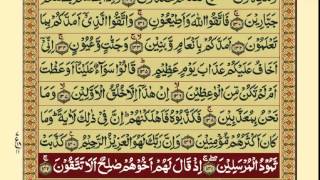 جَبَّارِيْنَ ﴿١٣٠﴾ فَاتَّقُوا اللّٰهَ وَاَطِيْعُوْنِ ﴿١٣١﴾ وَاتَّقُوا الَّذِيْۤ اَمَدَّكُمْ بِمَا
تَعْلَمُوْنَ ﴿١٣٢﴾ اَمَدَّكُمْ بِاَنْعَامٍ وَّبَنِيْنَ ﴿١٣٣﴾ وَجَنّٰتٍ وَّعُيُوْنٍ ﴿١٣٤﴾ اِنِّيْۤ
اَخَافُ عَلَيْكُمْ عَذَابَ يَوْمٍ عَظِيْمٍ ﴿١٣٥﴾ قَالُوْا سَوَآءٌ عَلَيْنَاۤ اَوَعَظْتَ
اَمْ لَمْ تَكُنْ مِّنَ الْوٰعِظِيْنَ ﴿١٣٦﴾ اِنْ هٰذَاۤ اِلَّا خُلُقُ الْاَوَّلِيْنَ ﴿١٣٧﴾ وَمَا
نَحْنُ بِمُعَذَّبِيْنَ ﴿١٣٨﴾ فَكَذَّبُوْهُ فَاَهْلَكْنٰهُمْ اِنَّ فِيْ ذٰلِكَ لَاٰيَةً وَمَا
كَانَ اَكْثَرُهُمْ مُّؤْمِنِيْنَ ﴿١٣٩﴾ وَاِنَّ رَبَّكَ لَهُوَ الْعَزِيْزُ الرَّحِيْمُ ﴿١٤٠﴾ كَذَّبَتْ
ثَمُوْدُ الْمُرْسَلِيْنَ ﴿١٤١﴾ اِذْ قَالَ لَهُمْ اَخُوْهُمْ صٰلِحٌ اَلَا تَتَّقُوْنَ ﴿١٤٢﴾